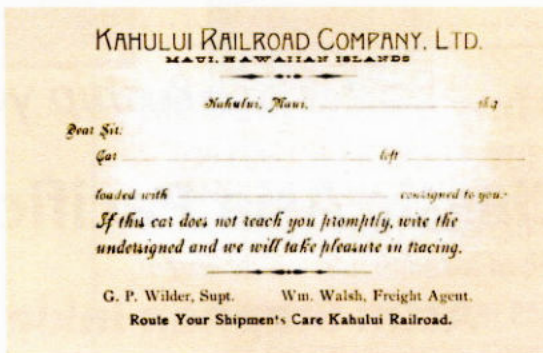 KAHULUI RAILROAD COMPANY, LTD.
MAUI, HAWAIIAN ISLANDS
Kahului, Maui, 189
Dear Sir:
Car left
loaded with consigned to you.
If this car does not reach you promptly, wire the
undersigned and we will take pleasure in tracing.
G. P. Wilder, Supt. Wm. Walsh, Freight Agent.
Route Your Shipments Care Kahului Railroad.